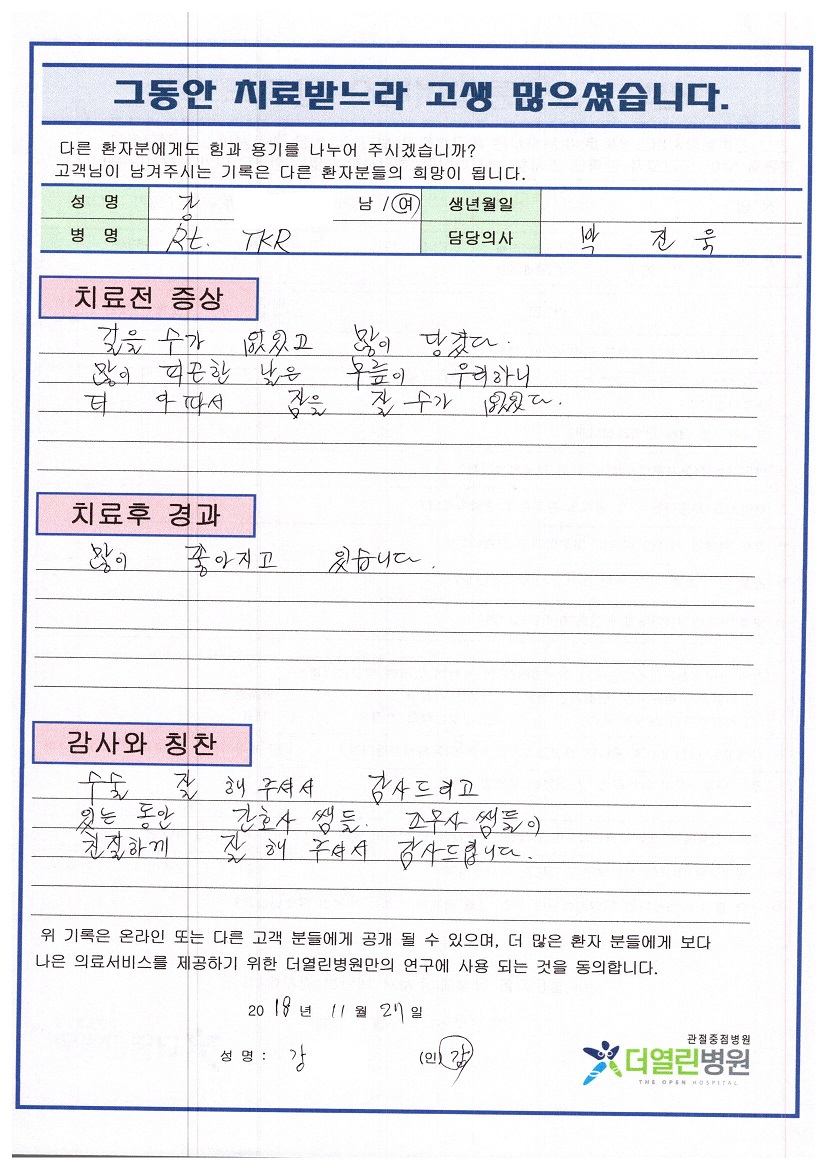 그동안 치료받느라 고생 많으셨습니다.
다른 환자분에게도 힘과 용기를 나누어 주시겠습니까?
고객님이 남겨주시는 기록은 다른 환자분들의 희망이 됩니다.
성 명 강 남 / 여 생년월일
병 명 Rt. TKR 담당의사 박 진 욱
치료전 증상
걸을 수가 없었고 많이 당겼다.
많이 피곤한 날은 무릎이 우려하니
더 아파서 잠을 잘 수가 없었다.
치료후 경과
많이 좋아지고 있습니다.
감사와 칭찬
수술 잘 해 주셔서 감사드리고
있는 동안 간호사 쌤들. 조무사 쌤들이
친절하게 잘 해 주셔서 감사드립니다.
위 기록은 온라인 또는 다른 고객 분들에게 공개 될 수 있으며, 더 많은 환자 분들에게 보다
나은 의료서비스를 제공하기 위한 더열린병원만의 연구에 사용 되는 것을 동의합니다.
2018년 11월 27일
성 명 : 강 (인) 강
관절중점병원
더열린병원
THE OPEN HOSPITAL